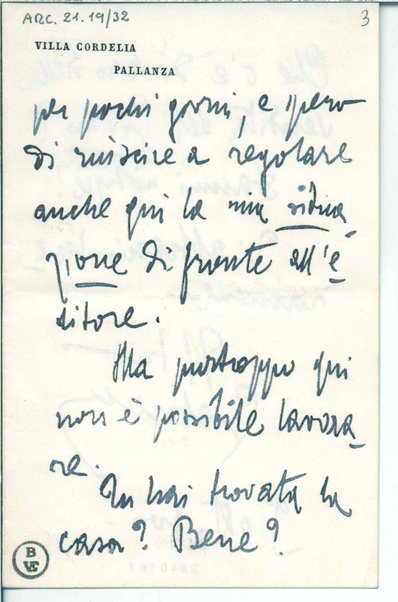 ARC. 21.19/32
3
VILLA CORDELIA
PALLANZA
per pochi giorni, e spero
di riuscire a regolare
anche qui la mia situa_
zione di fronte all'e_
ditore.
Ma purtroppo qui
non è possibile lavora_
re.
Tu hai trovata la
casa? Bene?